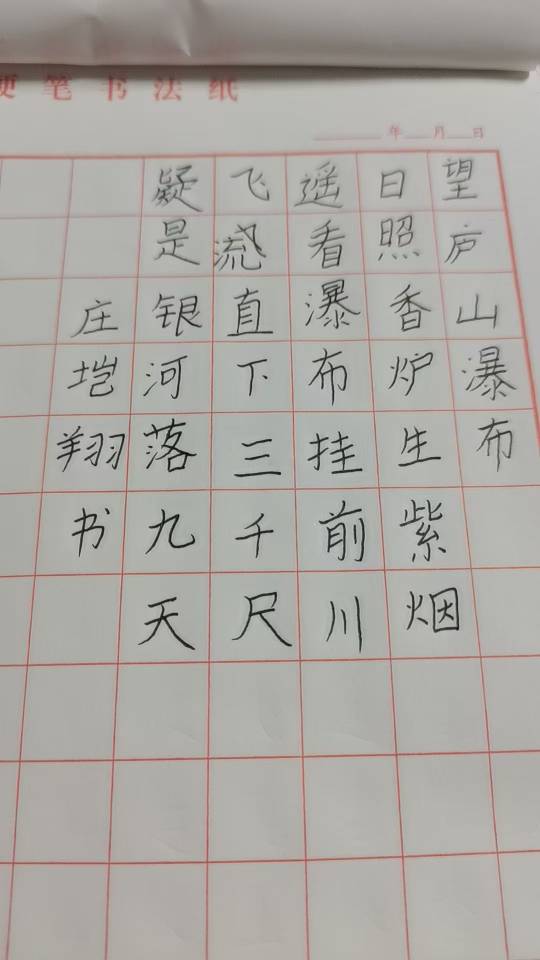 硬笔书法纸
年 月 日
望庐山瀑布
日照香炉生紫烟
遥看瀑布挂前川
飞流直下三千尺
疑是银河落九天
庄垲翔书